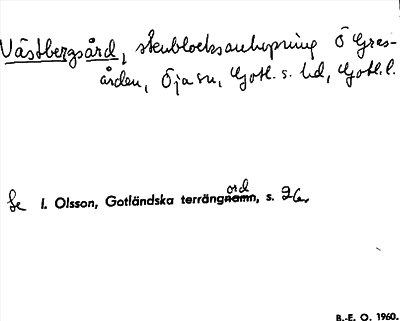 Västbergsård, stenblocksanhopning Ö Gres-
ården, Öja sn, Gotl. s. hd, Gotl. l.
Se I. Olsson, Gotländska terrängord, s. 26
B.-E. O. 1960.